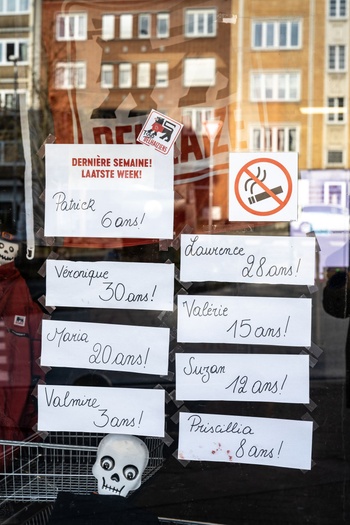 DERNIÈRE SEMAINE!
LAATSTE WEEK!
Patrick
6 ans!
Laurence
28 ans!
Véronique
30 ans!
Valérie
15 ans!
Maria
20 ans!
Suzan
12 ans!
Valmire
3 ans!
Priscillia
8 ans!